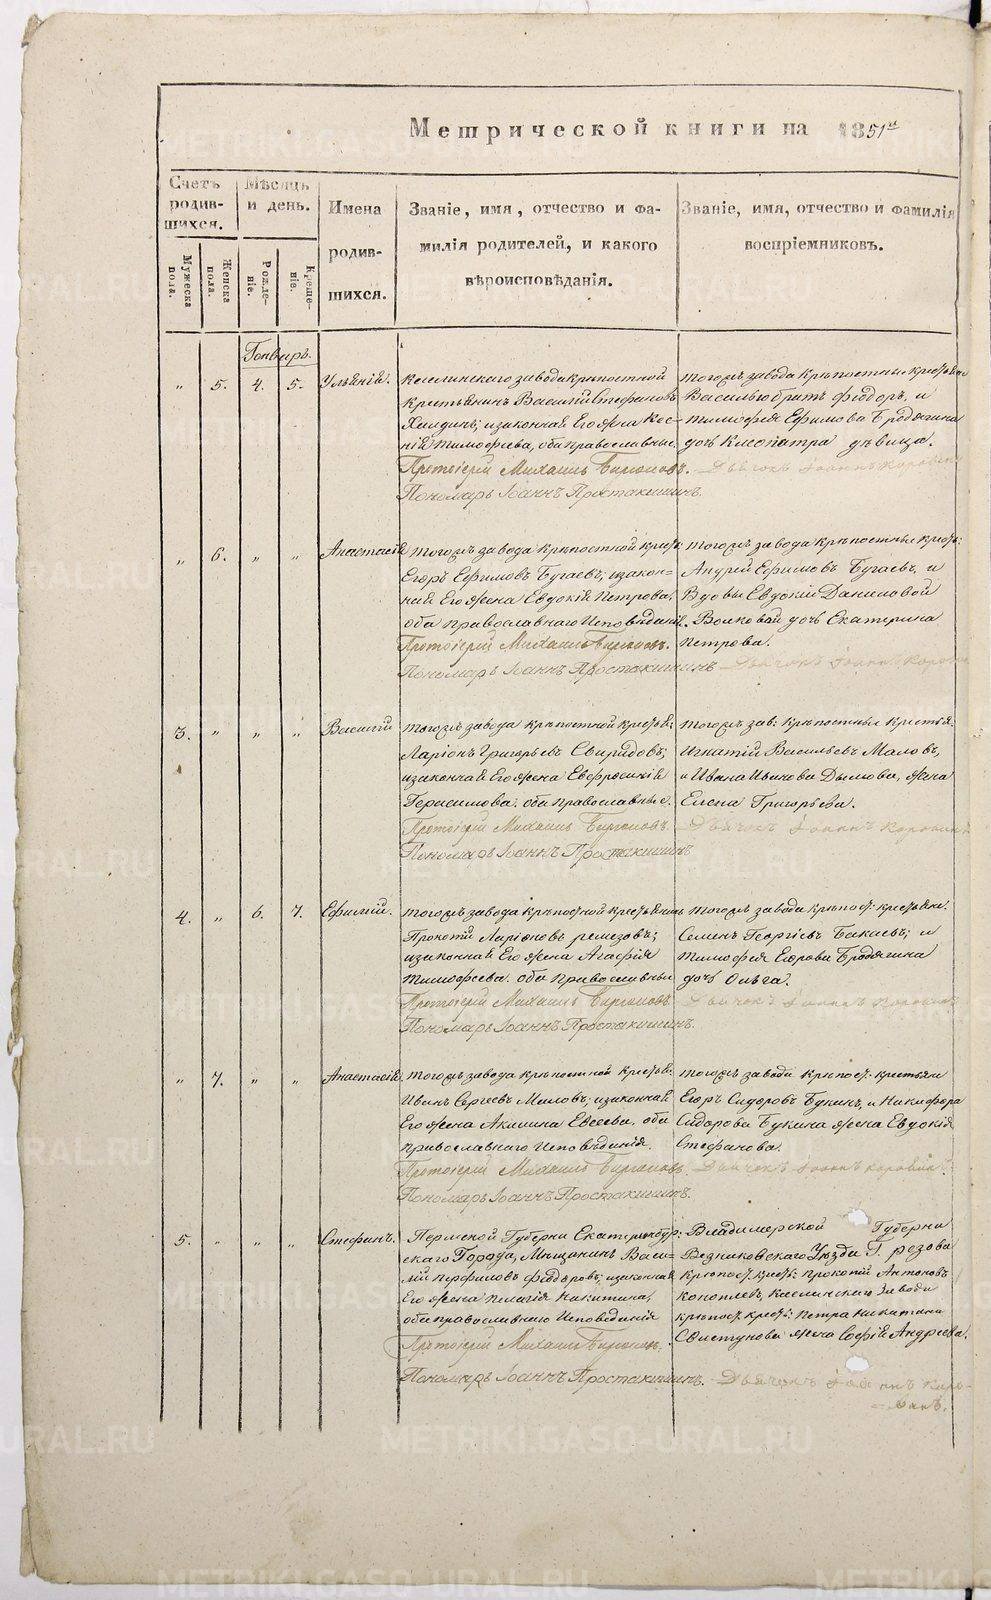 Метрической книги на 1851й
Счетъ родившихся.
Мѣсяцъ и день.
Имена родившихся.
Званіе, имя, отчество и фамилія родителей, и какого вѣроисповѣданія.
Званіе, имя, отчество и фамилія воспріемниковъ.
Мужеска пола.
Женска пола.
Рожденіе.
Крещеніе.
Генварь.
„ 5. 4. 5. Ульянія.
Каслинскаго завода крѣпостной
крестьянинъ Василій Стефановъ
законная Его жена
Тимофѣева, оба православные.
Протоіерей Михаилъ
Пономарь Іоаннъ Простакишинъ.
тогожъ завода крѣпостныя
Василью братъ Ѳеодоръ, и
Тимофея Ефимова Бродягина
дочь Клеопатра дѣвица.
Дьячокъ Іоаннъ Коровинъ
„ 6. „ „ Анастасія
тогожъ завода крѣпостной крест:
Егоръ Ефимовъ Бугаевъ; и законная
Его жена Евдокія Петрова,
оба православнаго Исповѣданія.
Протоіерей Михаилъ
Пономарь Іоаннъ Простакишинъ
тогожъ завода крѣпостныя крест:
Андрей Ефимовъ Бугаевъ, и
Вдовы Евдокіи Даниловой
Волковой дочь Екатерина
Петрова.
Дьячокъ Іоаннъ Коровинъ
3. „ „ „ Василій
тогожъ завода крѣпостной крестья:
Ларіонъ Григорьевъ Свиридовъ;
и законная Его жена Евфросинія
Герасимова. оба православные.
Протоіерей Михаилъ
Пономарь Іоаннъ Простакишинъ
тогожъ зав: крѣпостныя крестья:
Игнатій Васильевъ Маловъ,
и Ивана Иванова Дылдова, жена
Елена Григорьева.
Дьячокъ Іоаннъ Коровинъ
4. „ 6. 7. Ефимій.
тогожъ завода крѣпостной крестьянинъ
Прокопій Ларіоновъ Ремезовъ;
и законная Его жена Агафія
Тимофеева. оба православны
Протоіерей Михаилъ
Пономарь Іоаннъ Простакишинъ.
тогожъ завода крѣпост: крестьяне.
Семенъ Георгіевъ Бакаевъ; и
Тимофея Егорова Бродягина
дочь Ольга.
Дьячокъ Іоаннъ Коровинъ
„ 7. „ „ Анастасія.
тогожъ завода крѣпостной крестья:
Иванъ Сергеевъ Маловъ; и законная
Его жена Акилина Евсеева, оба
православнаго Исповѣданія.
Протоіерей Михаилъ
Пономарь Іоаннъ Простакишинъ.
тогожъ завода крѣпост: крестьяне
Егоръ Сидоровъ Букинъ, и Никифора
Сидорова Букина жена Евдокія
Стефанова.
Дьячокъ Іоаннъ Коровинъ.
5. „ „ „ Стефанъ.
Пермской Губерни Екатеринбур:
скаго Города, Мѣщанинъ Васи=
лій Ѳеодоровъ; и законная
Его жена Пелагія Никитина,
оба православнаго Исповеданія
Протоіерей Михаилъ
Пономарь Іоаннъ Простакишинъ.
Владимерской Губерни
Везниковскаго Уѣзда Г.
крѣпост: крестъ: Прокопій Антоновъ
Коноплевъ, Каслинскаго Завода
крѣпост: кресть: Петра Никитина
Свистунова жена Софія Андреева.
Дьячокъ Іоаннъ Коро-
=винъ.
METRIKI.GASO-URAL.RU